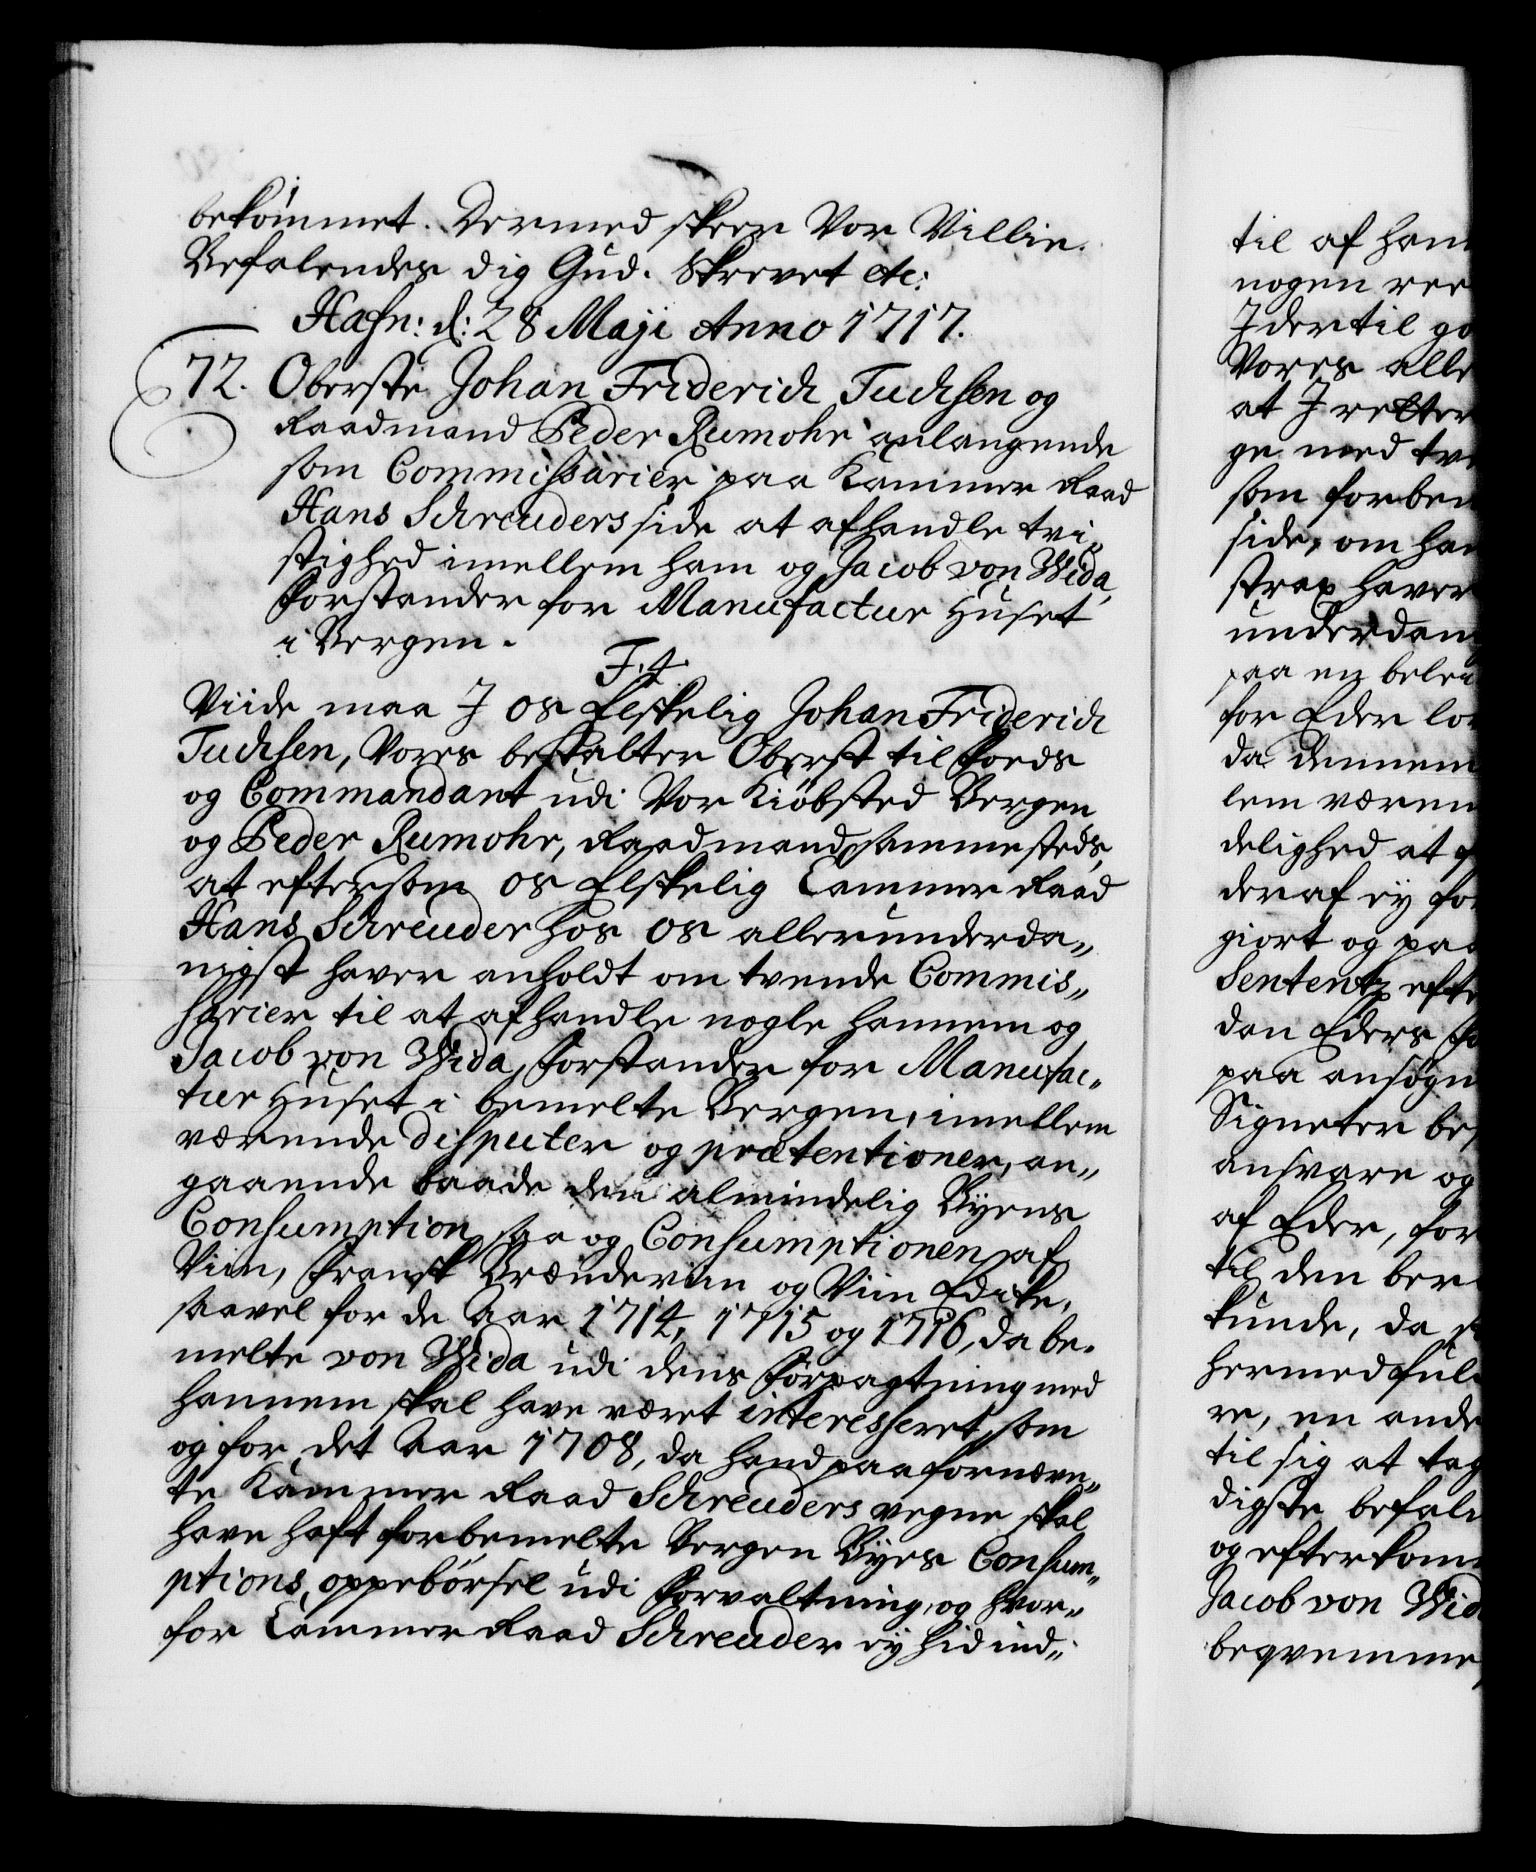 bekommet. Dermed skeer Vor Villie.
Befalendes dig Gud. Skrevet etc:
Hafn: d: 28 Maji Anno 1717.
72. Oberste Johan Friderich Tuchsen og
Raadmand Peder Rumohr anlangende
som Commissarier paa Kammer Raad
Hans Schreuders side at afhandle tvi„
stighed imellem ham og Jacob von Wida,
Forstander for Manufactur Huset
i Bergen.
F. 4.
Viide maa J os Elskelig Johan Friderich
Tuchsen, Vores bestalter Oberst til Foeds
og Commandant udi Vor Kiöbsted Bergen
og Peder Rumohr, Raadmand sammesteds,
at eftersom os Elskelig Cammer Raad
Hans Schreuder hos os allerunderda„
nigst haver anholdt om tvende Commis„
sarier til at afhandle nogle hannem og
Jacob von Wida, Forstander for Manufac„
tur Huset i bemelte Bergen, imellem
værende disputer og prætentioner, an„
gaaende baade den almindelig Byens
Consumption saa og Consumptionen af
Viin, Fransk Brændeviin og Viin Edike,
saavel for de Aar 1714, 1715 og 1716, da be„
melte von Wida udi dens Forpagtning med
hannem skal have været interesseret, som
og for det Aar 1708, da hand paa fornævn„
te Kammer Raad Schreuders vegne skal
have haft forbemelte Bergen Byes Consum„
ptions oppebörsel udi Forvaltning, og hvor„
for Cammer Raad Schreuder ey hid ind„
til af han
nogen
J dertil
Vores alle
at J
ge med
som forben
side, om
strax haver
underdan
paa en
for Eder
da dennem
lem væren
delighed at
deraf ey for
giort og paa
Sententz efte
dan Eders
paa ansögn
Signeter be
ansvare og
af Eder, for
til den
kunde, da
hermed
re, en ande
til sig at tag
digste befal
og efterkom
Jacob von Wid
beqvemme